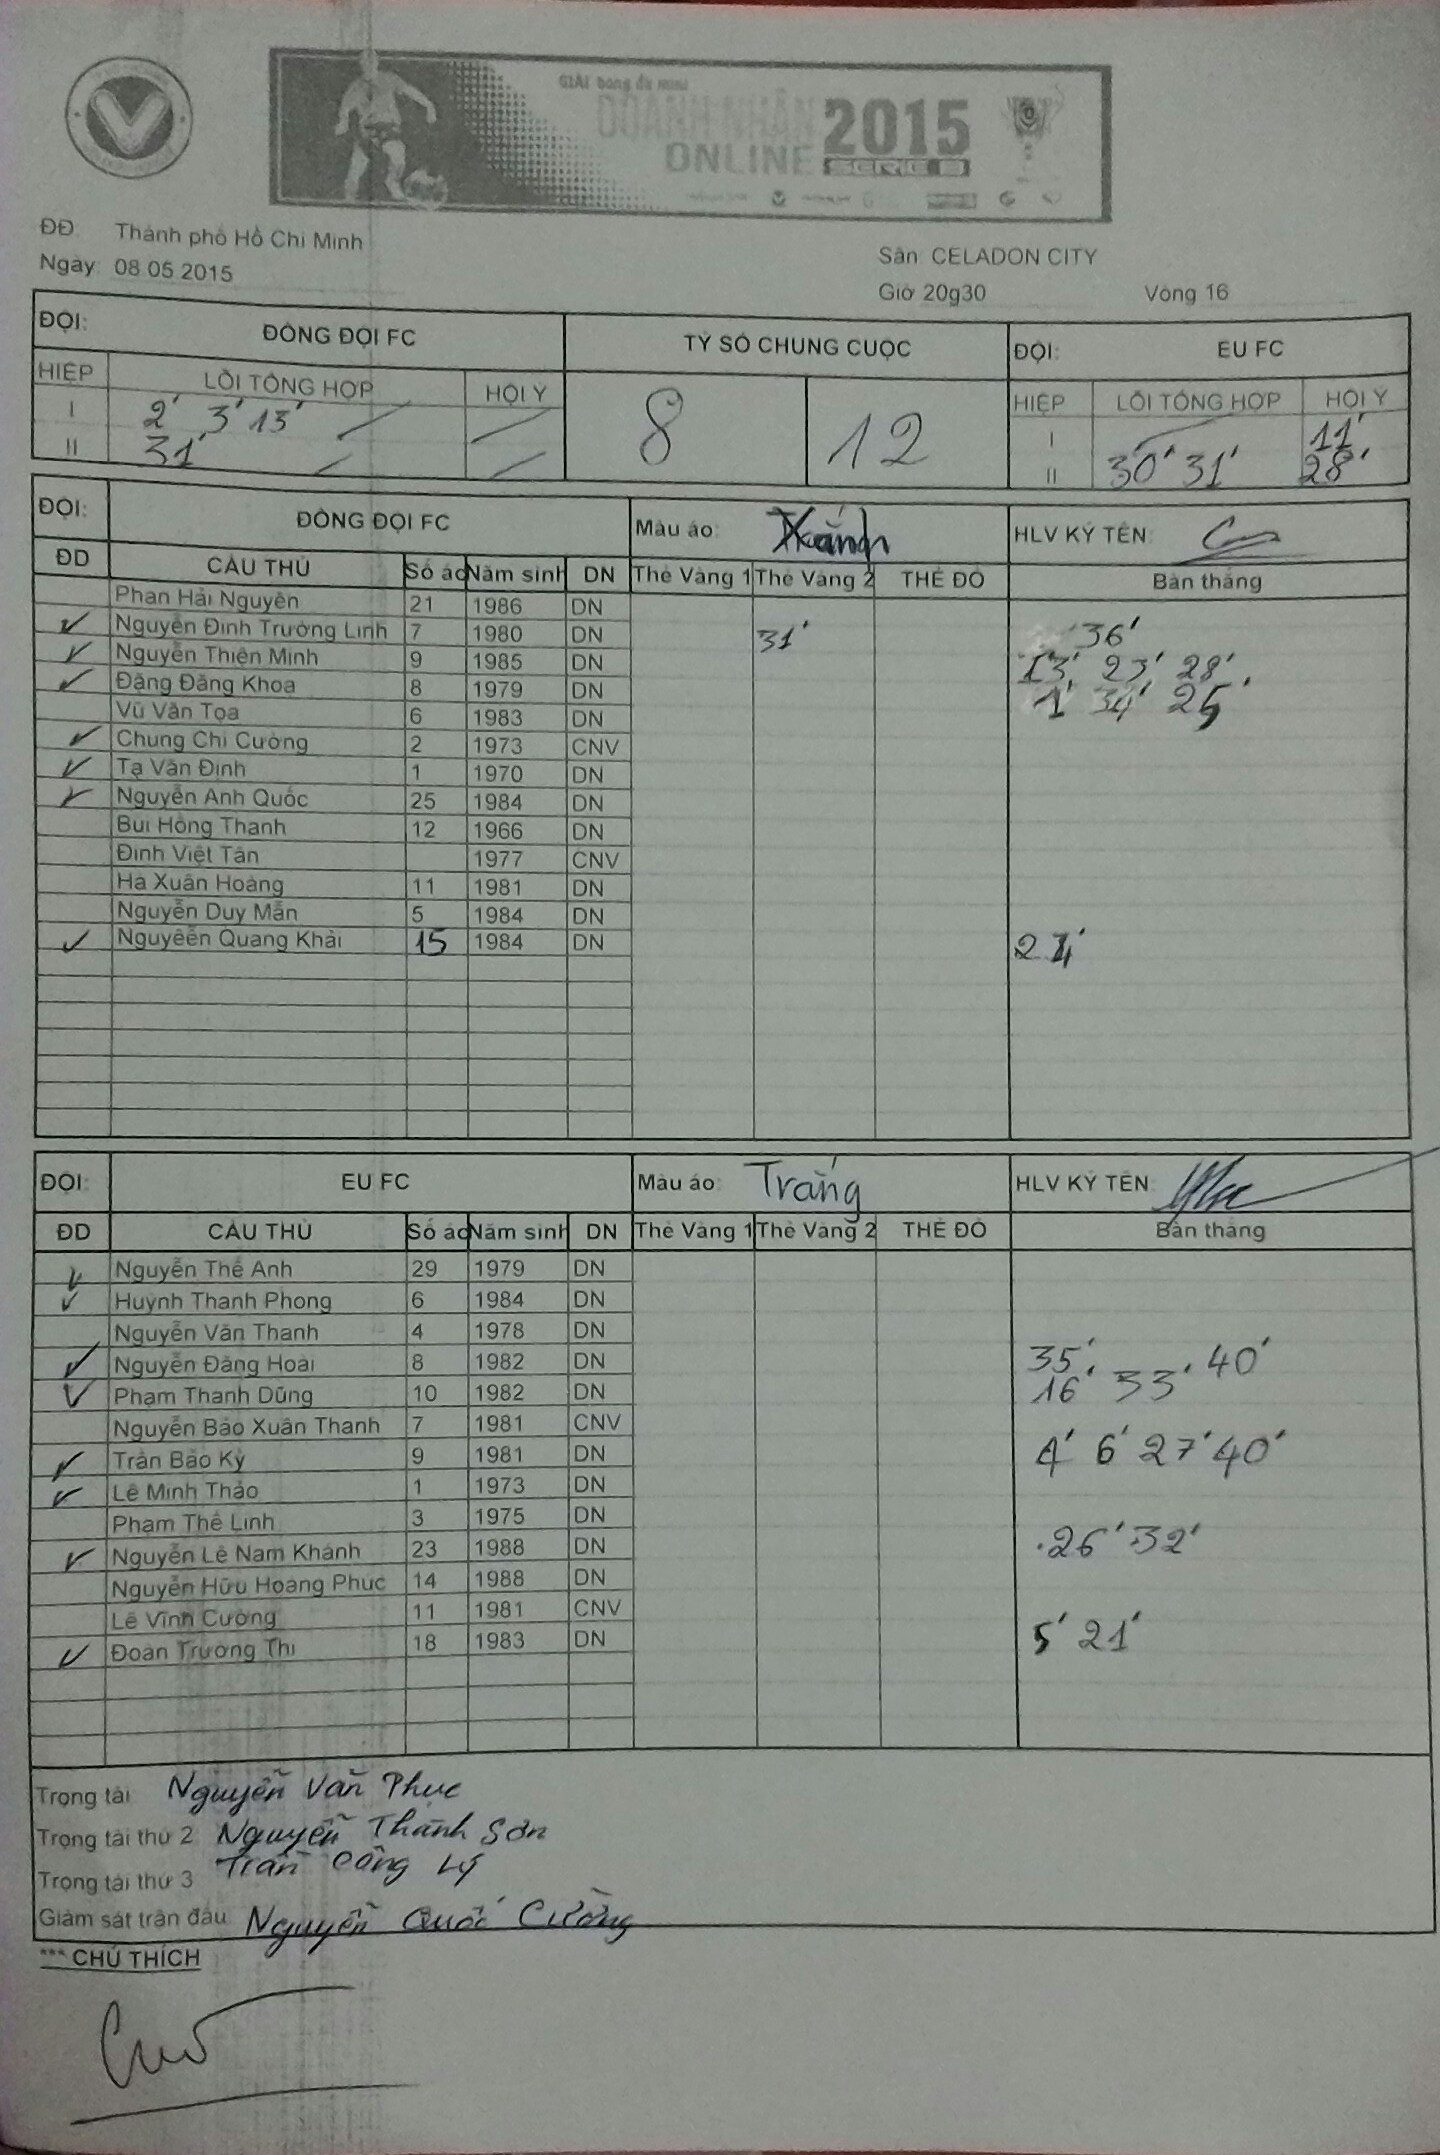 GIẢI bóng đá mini
DOANH NHÂN
ONLINE
2015
SERIE B
ĐĐ: Thành phố Hồ Chí Minh
Ngày: 08.05.2015
Sân: CELADON CITY
Giờ 20g30 Vòng 16
ĐỘI: ĐỒNG ĐỘI FC TỶ SỐ CHUNG CUỘC ĐỘI: EU FC
HIỆP LỖI TỔNG HỢP HỘI Ý 8 12 HIỆP LỖI TỔNG HỢP HỘI Ý
I 2' 3' 13' I 11'
II 31' II 30' 31' 28'
ĐỘI: ĐỒNG ĐỘI FC Màu áo: HLV KÝ TÊN:
ĐD CẦU THỦ Số áo Năm sinh DN Thẻ Vàng 1 Thẻ Vàng 2 THẺ ĐỎ Bàn thắng
Phan Hải Nguyên 21 1986 DN
✓ Nguyễn Đình Trường Linh 7 1980 DN 31' 36'
✓ Nguyễn Thiện Minh 9 1985 DN 13' 23' 28'
✓ Đặng Đăng Khoa 8 1979 DN 1' 34' 25'
Vũ Văn Tọa 6 1983 DN
✓ Chung Chí Cường 2 1973 CNV
✓ Tạ Văn Định 1 1970 DN
✓ Nguyễn Anh Quốc 25 1984 DN
Bùi Hồng Thanh 12 1966 DN
Đinh Việt Tân 1977 CNV
Hà Xuân Hoàng 11 1981 DN
Nguyễn Duy Mẫn 5 1984 DN
✓ Nguyễễn Quang Khải 15 1984 DN
ĐỘI: EU FC Màu áo: Trắng HLV KÝ TÊN:
ĐD CẦU THỦ Số áo Năm sinh DN Thẻ Vàng 1 Thẻ Vàng 2 THẺ ĐỎ Bàn thắng
✓ Nguyễn Thế Anh 29 1979 DN
✓ Huỳnh Thanh Phong 6 1984 DN
Nguyễn Văn Thanh 4 1978 DN
✓ Nguyễn Đăng Hoài 8 1982 DN 35' 40'
✓ Phạm Thanh Dũng 10 1982 DN 16' 33'
Nguyễn Bảo Xuân Thanh 7 1981 CNV
✓ Trần Bảo Kỳ 9 1981 DN 4' 6' 27' 40'
✓ Lê Minh Thảo 1 1973 DN
Phạm Thế Linh 3 1975 DN
✓ Nguyễn Lê Nam Khánh 23 1988 DN 26' 32'
Nguyễn Hữu Hoàng Phúc 14 1988 DN
Lê Vĩnh Cường 11 1981 CNV
✓ Đoàn Trường Thi 18 1983 DN 5' 21'
Trọng tài Nguyễn Văn Phục
Trọng tài thứ 2: Nguyễn Thành Sơn
Trọng tài thứ 3 Trần Công Lý
Giám sát trận đấu: Nguyễn Quốc Cường
*** CHÚ THÍCH